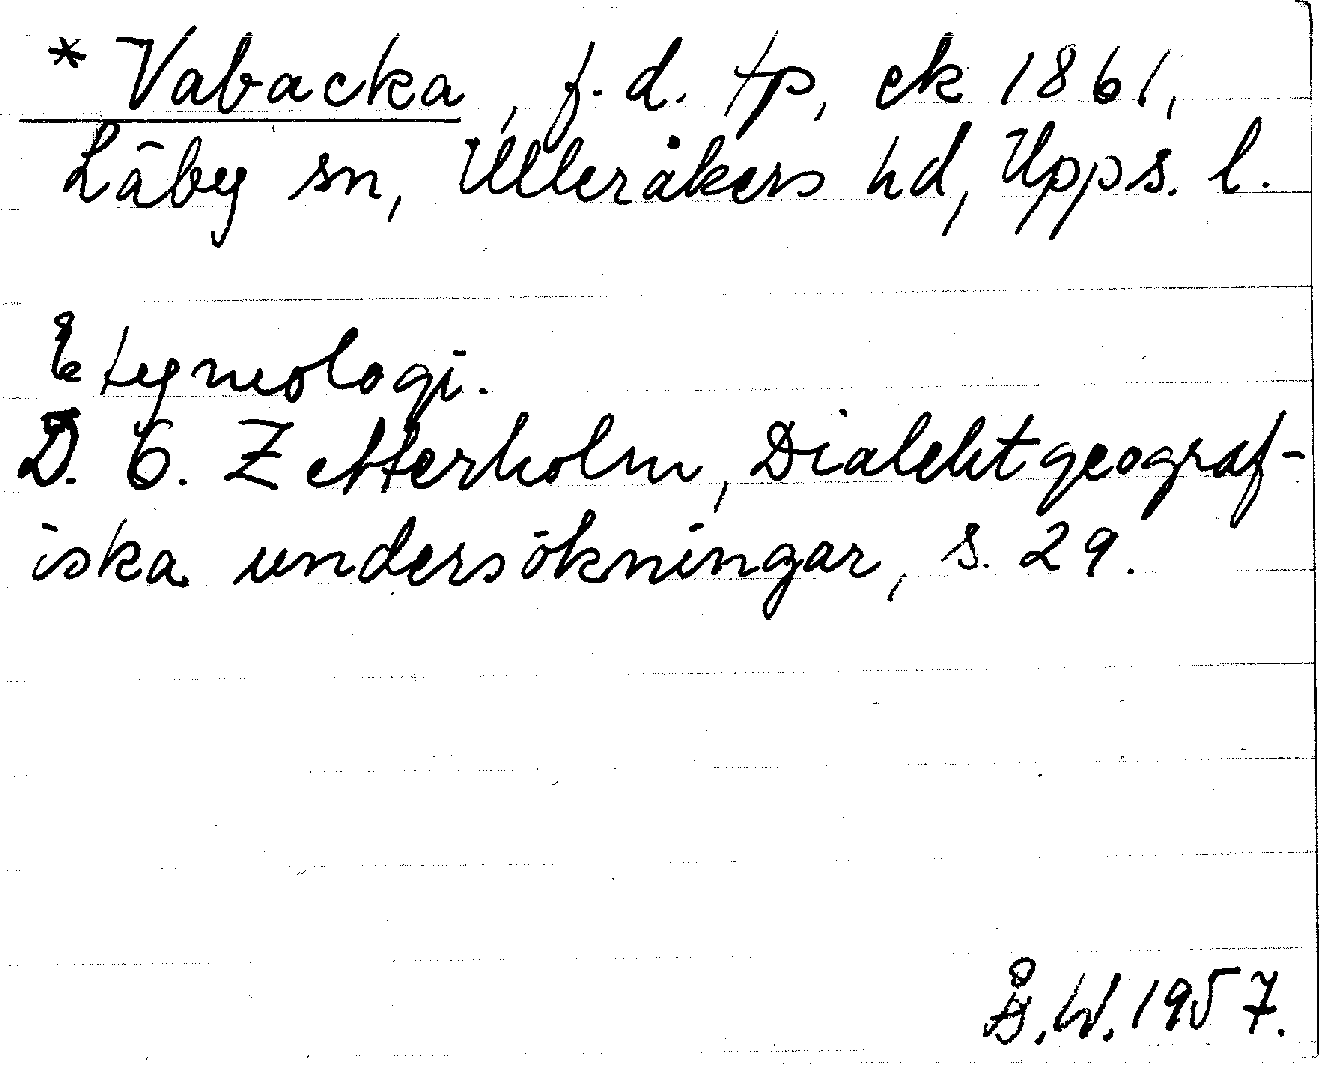 * Vabacka, f. d. tp, ek 1861,
Läby sn, Ulleråkers hd, Upps. l.
Etymologi.
D. O. Zetterholm, Dialektgeograf-
iska undersökningar, s. 29.
Å.W. 1957.